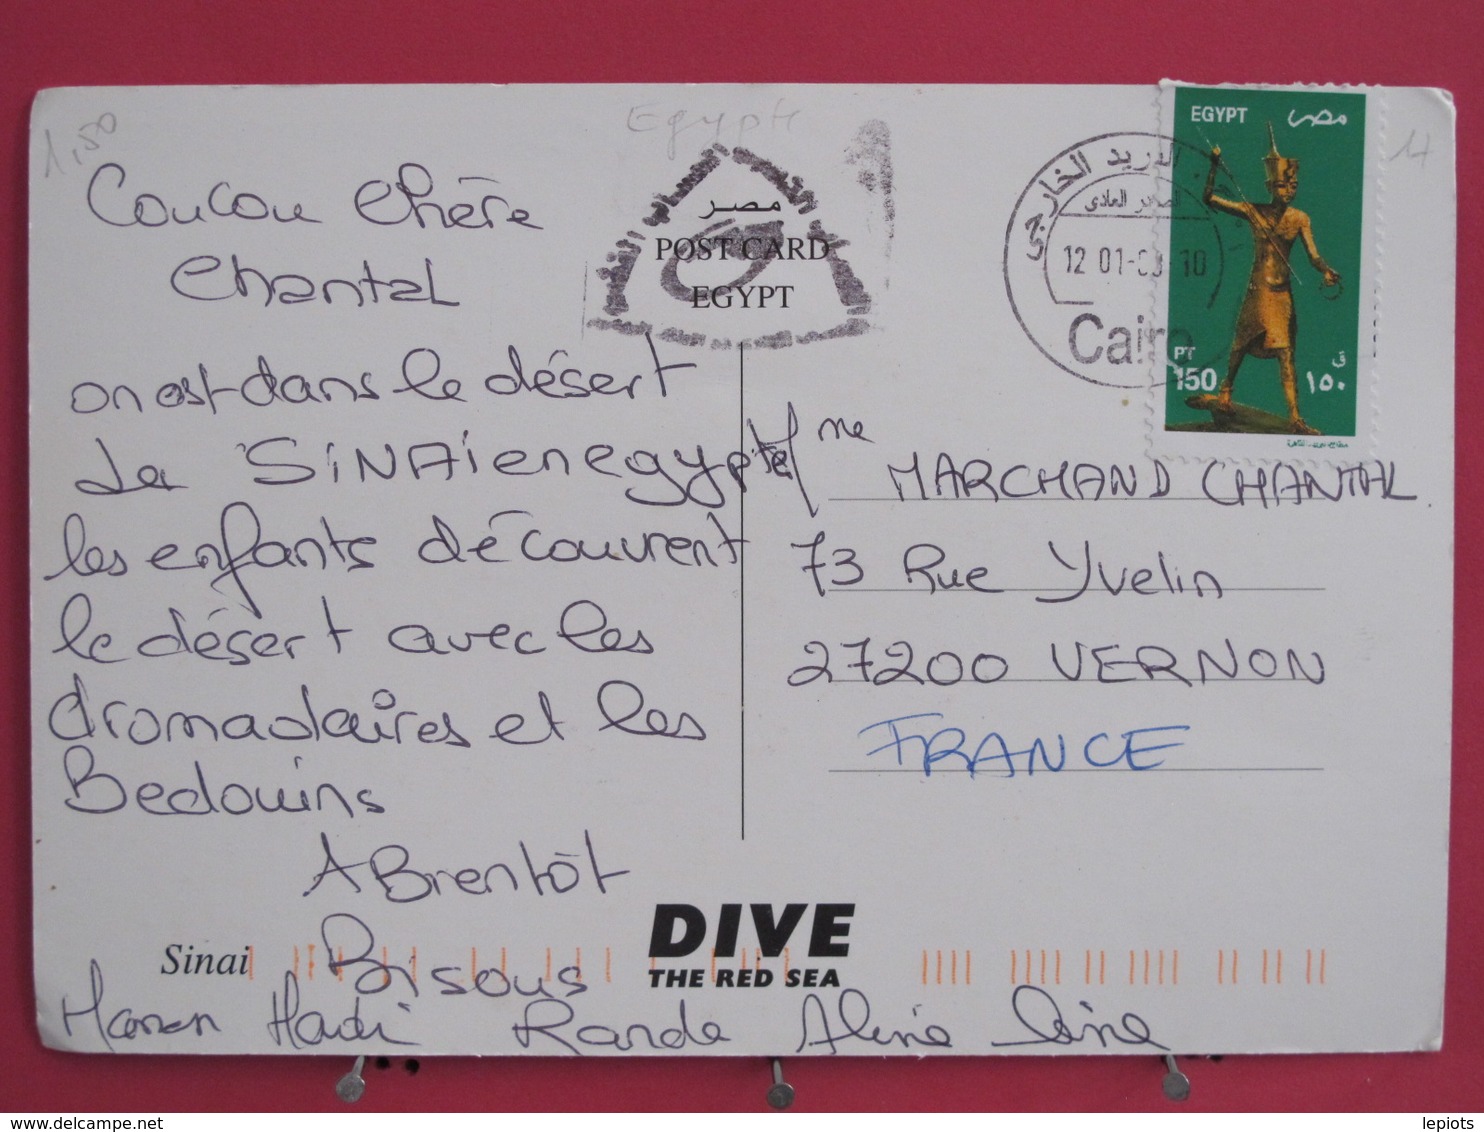 1,50
Egypte
Coucou chère
Chantal
on est dans le désert
de SiNAï en egypte
les enfants découvrent
le désert avec les
dromadaires et les
Bedouins
A Bientôt
Bisous
Hanan Hadi Randa Aline
مصر
POST CARD
EGYPT
EGYPT مصر
البريد الخارجى
الصادر العادى
12 01-
10
Cairo
PT
150
ق
١٥٠
Mme
MARCHAND CHANTAL
73 Rue Yvelin
27200 VERNON
FRANCE
Sinai
DIVE
THE RED SEA
lepiots